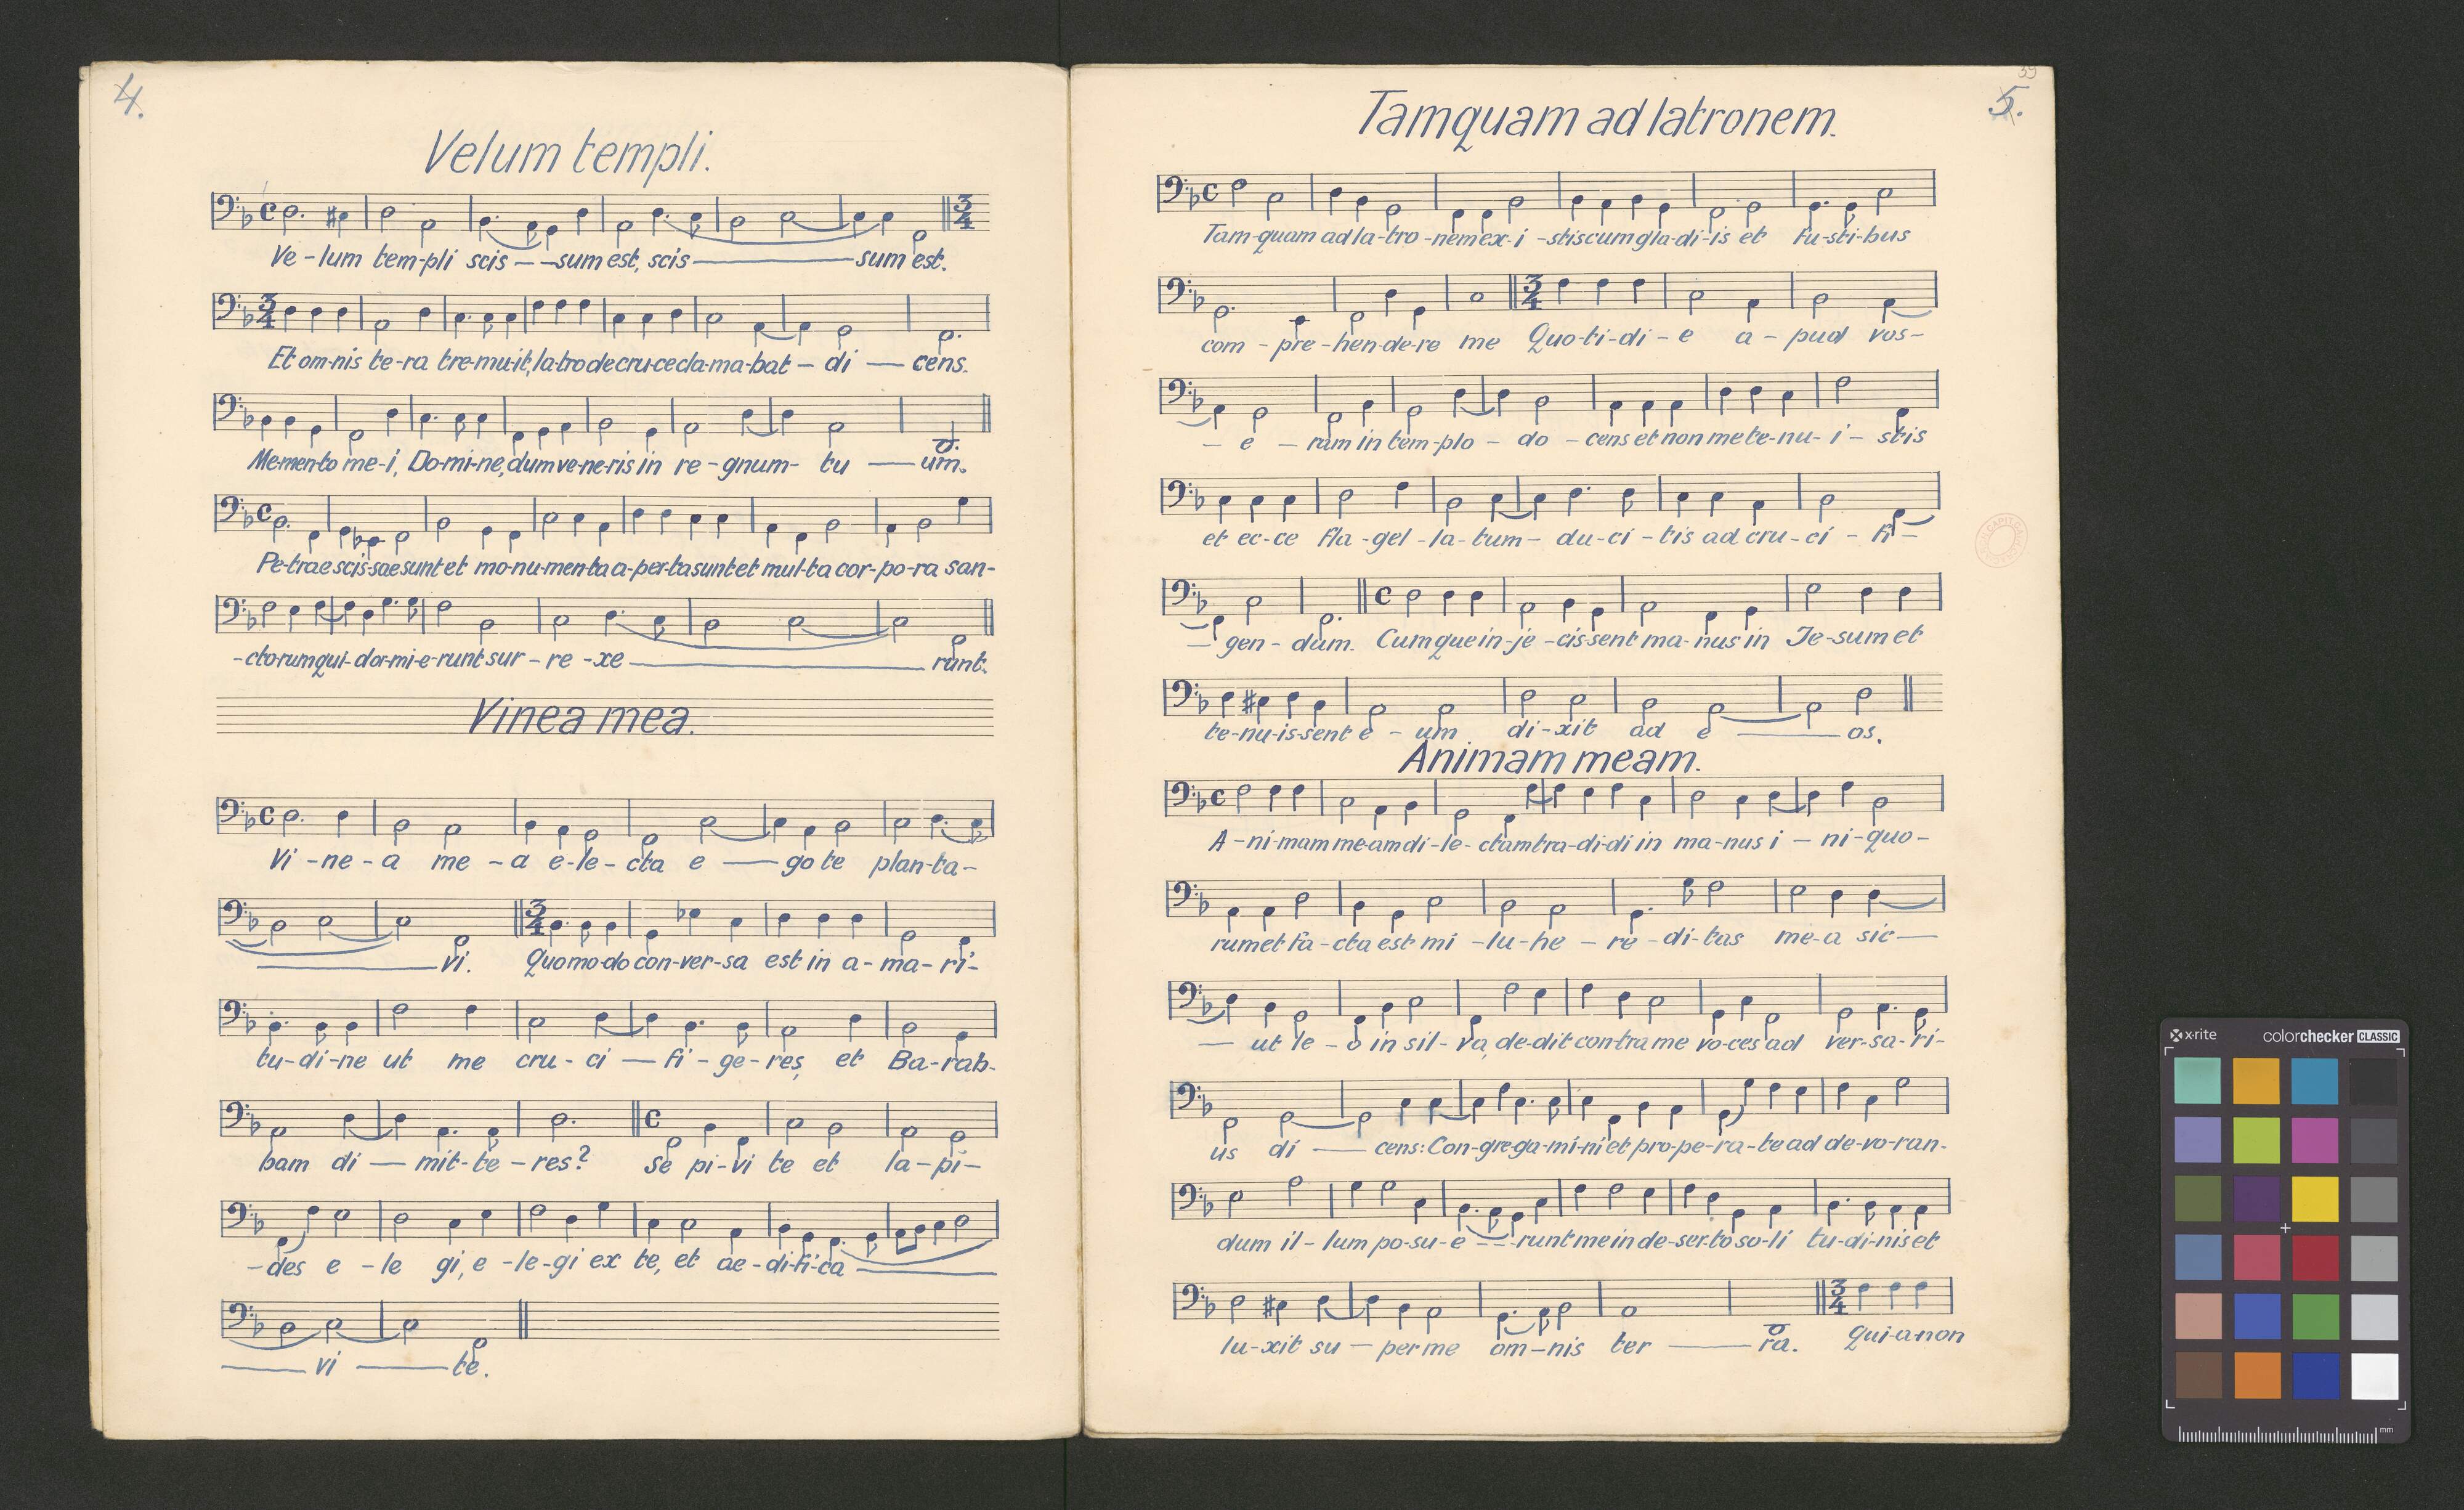 4.
Velum templi.
Ve-lum tem-pli scis--sum est, scis—sum est.
Et om-nis te-ra tre-mu-it, la-tro de cru-ce cla-ma-bat-di—cens.
Me-men-to me-i, Do-mi-ne, dum ve-ne-ris in re-gnum-tu—um.
Pe-trae scis-sae sunt et mo-nu-men-ta a-per-ta sunt et mul-ta cor-po-ra san-
-cto-rum qui-dor-mi-e-runt sur-re-xe—runt.
Vinea mea.
Vi-ne-a me-a e-le-cta e—go te plan-ta-
—vi. Quo mo-do con-ver-sa est in a-ma-ri-
tu-di-ne ut me cru-ci—fi-ge-res, et Ba-rab-
bam di—mit-te-res? se pi-vi te et la-pi-
-des e-le gi, e-le-gi ex te, et ae-di-fi-ca—
—vi—te.
39
5.
Tamquam ad latronem.
Tam-quam ad la-tro-nem ex-i-stis cum gla-di-is et fu-sti-bus
com-pre-hen-de-re me Quo-ti-di-e a-pud vos-
-e-ram in tem-plo-do-cens et non me te-nu-i-stis
et ec-ce fla-gel-la-tum-du-ci-tis ad cru-ci-fi-
-gen-dum. Cum que in-je-cis-sent ma-nus in Je-sum et
te-nu-is-sent e-um di-xit ad e—os.
Animam meam.
A-ni-mam me-am di-le-ctam tra-di-di in ma-nus i-ni-quo-
rum et fa-cta est mi-lu-he-re-di-tas me-a sic—
—ut le-o in sil-va, de-dit con-tra me vo-ces ad ver-sa-ri-
us di—cens: Con-gre-ga-mi-ni et pro-pe-ra-te ad de-vo-ran-
dum il-lum po-su-e--runt me in de-ser-to so-li tu-di-nis et
lu-xit su-per me om-nis ter—ra. Qui-a-non
x-rite colorchecker CLASSIC
mm